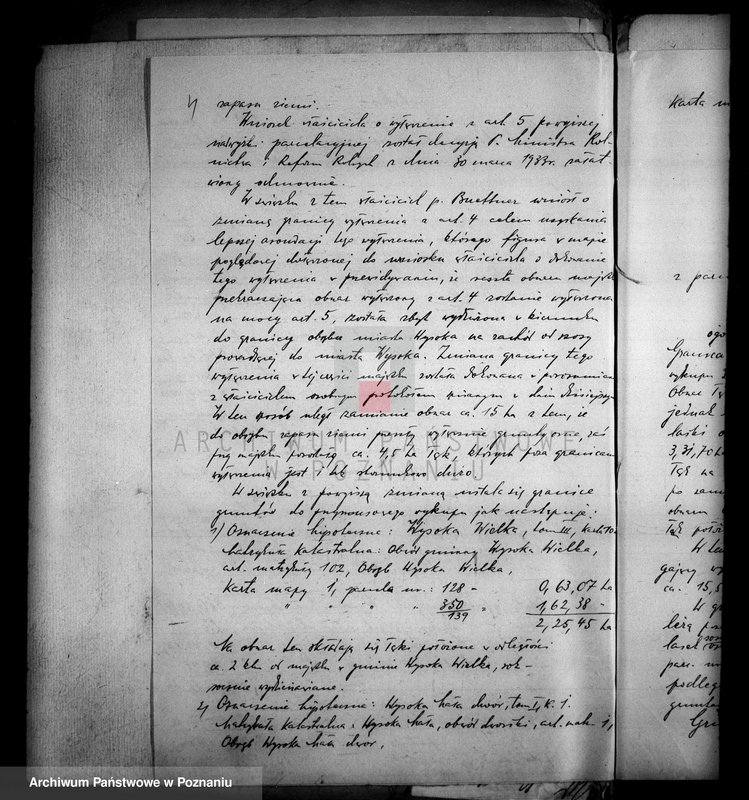 zapasu ziemi.
Wniosek właściciela o wyłączenie z art. 5 powyższej
parcelacyjnej został decyzją P. Ministra Rol-
nictwa i Reform Rolnych z dnia 30 marca 1933r. załat-
wiony odmownie.
W związku z tem właściciel p. Buettner wniósł o
zmianę granicy wyłączenia z art. 4 celem uzyskania
lepszej arondacji tego wyłączenia, którego figura w mapie
poglądowej dołączonej do wniosku właściciela o dokonanie
tego wyłączenia w przewidywaniu, że reszta obszaru
przekraczająca obszar wyłączony z art. 4 zostanie wyłączona
na mocy art. 5, została zbyt wydłużona w kierunku
do granicy obrębu miasta Wysoka na zachód od szosy
prowadzącej do miasta Wysoka. Zmiana granicy tego
wyłączenia w tej części majątku została dokonana w porozumieniu
z właścicielem osobnym protokołem w dniu dzisiejszym
W ten sposób uległ zamianie obszar ca. 15 ha z tem, że
do obrębu zapasu ziemi
przy majątku pozostają ca. 4,5 ha łąk, których poza granicami
wyłączenia jest i tak stosunkowo dużo.
W związku z powyższą zmianą ustala się granice
gruntów do przymusowego wykupu jak następuje:
1) Oznaczenie hipoteczne: Wysoka Wielka, tom III,
Matrykuła katastralna: Obwód gminny Wysoka Wielka,
art. matrykuły 102, Obręb Wysoka Wielka,
Karta mapy 1, parcela nr.: 128 - 0,63,07 ha
" " " " 350/139 " 1,62,38 -
2,25,45 ha
Na obszar ten składają się łąki położone w odległości
ca. 2 klm od majątku w gminie Wysoka Wielka, rok-
rocznie wydzierżawiane.
2) Oznaczenie hipoteczne: Wysoka Mała dwór, tom I, k. 1.
Matrykuła katastralna: Wysoka Mała, obwód dworski, art. mat. 1,
Obręb Wysoka Mała dwór,
Karta
Granica
wykupu
Obszar
jednak
3,31,70 ha
łąk na
obszaru
łąk
W
ca. 15,5
W
leżą
podleg
Archiwum Państwowe w Poznaniu
ARCHIWUM PAŃSTWOWE
W POZNANIU